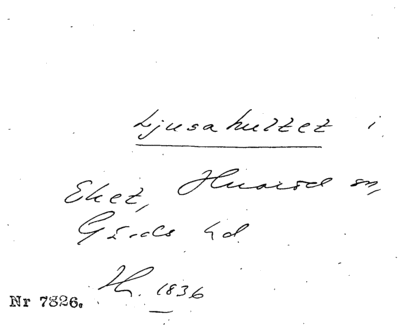 Ljusahultet i
Eket, Huaröd sn,
Gärds hd
H. 1836
Nr 7826.